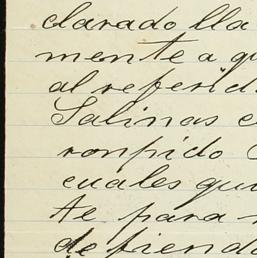 clarado lla
mente a qu
al referid
Salinas e
ronpido
cuales qui
te para
defiend